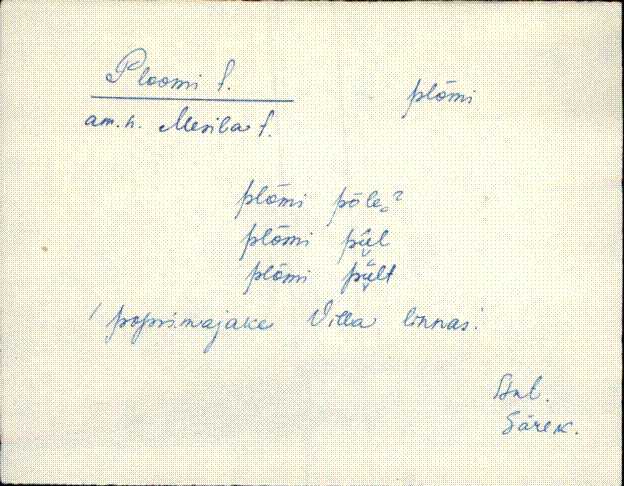 Ploomi t. plōmi
am.n. Mesila t.
plōmi pōle
plōmi pǖl
plōmi pǖlt
/ popsimajake Villa linnas.
Särek.